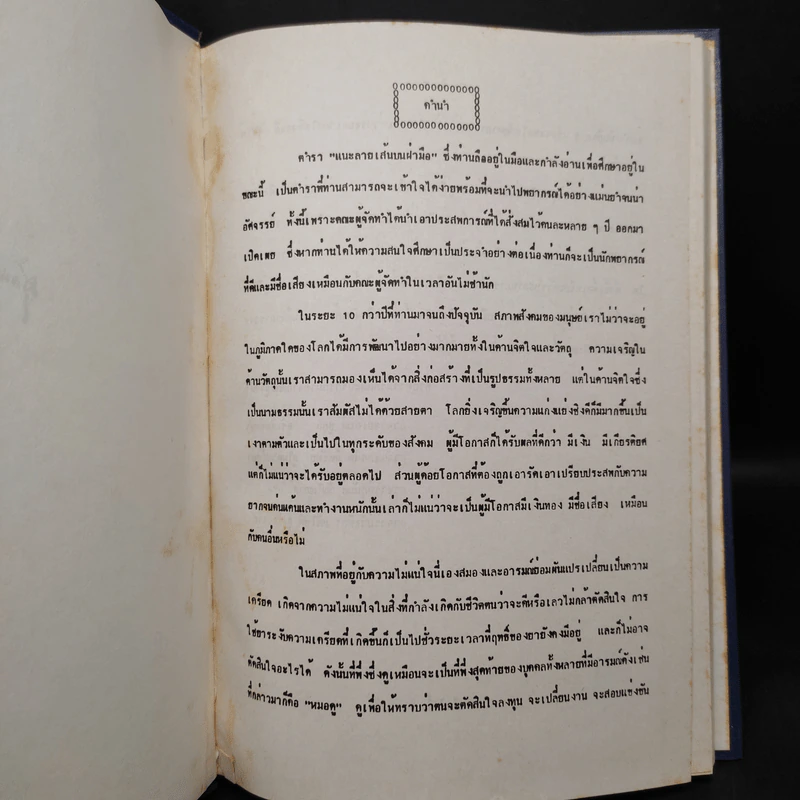 คำนำ
ตำรา "แนะลายเส้นบนฝ่ามือ" ซึ่งท่านถืออยู่ในมือและกำลังอ่านเพื่อศึกษาอยู่ใน
ขณะนี้ เป็นตำราที่ท่านสามารถจะเข้าใจได้ง่ายพร้อมที่จะนำไปพยากรณ์ได้อย่างแม่นยำจนน่า
อัศจรรย์ ทั้งนี้เพราะคณะผู้จัดทำได้นำเอาประสพการณ์ที่ได้สั่งสมไว้คนละหลาย ๆ ปี ออกมา
เปิดเผย ซึ่งหากท่านได้ให้ความสนใจศึกษาเป็นประจำอย่างต่อเนื่องท่านก็จะเป็นนักพยากรณ์
ที่ดีและมีชื่อเสียงเหมือนกับคณะผู้จัดทำในเวลาอันไม่ช้านัก
ในระยะ 10 กว่าปีที่ผ่านมาจนถึงปัจจุบัน สภาพสังคมของมนุษย์เราไม่ว่าจะอยู่
ในภูมิภาคใดของโลกได้มีการพัฒนาไปอย่างมากมายทั้งในด้านจิตใจและวัตถุ ความเจริญใน
ด้านวัตถุนั้นเราสามารถมองเห็นได้จากสิ่งก่อสร้างที่เป็นรูปธรรมทั้งหลาย แต่ในด้านจิตใจซึ่ง
เป็นนามธรรมนั้นเราสัมผัสไม่ได้ด้วยสายตา โลกยิ่งเจริญขึ้นความแก่งแย่งชิงดีก็มีมากขึ้นเป็น
เงาตามตัวและเป็นไปในทุกระดับของสังคม ผู้มีโอกาสก็ได้รับผลที่ดีกว่า มีเงิน มีเกียรติยศ
แต่ก็ไม่แน่ว่าจะได้รับอยู่ตลอดไป ส่วนผู้ด้อยโอกาสที่ต้องถูกเอารัดเอาเปรียบประสพกับความ
ยากจนค่นแค้นและทำงานหนักนั้นเล่าก็ไม่แน่ว่าจะเป็นผู้มีโอกาสมีเงินทอง มีชื่อเสียง เหมือน
กับคนอื่นหรือไม่
ในสภาพที่อยู่กับความไม่แน่ใจนี้เองสมองและอารมณ์ย่อมผันแปรเปลี่ยนเป็นความ
เครียด เกิดจากความไม่แน่ใจในสิ่งที่กำลังเกิดกับชีวิตตนว่าจะดีหรือเลวไม่กล้าตัดสินใจ การ
ใช้ยาระงับความเครียดที่เกิดขึ้นก็เป็นไปชั่วระยะเวลาที่ฤทธิ์ของยายังคงมีอยู่ และก็ไม่อาจ
ตัดสินใจอะไรได้ ดังนั้นที่พึ่งซึ่งดูเหมือนจะเป็นที่พึ่งสุดท้ายของบุคคลทั้งหลายที่มีอารมณ์ดังเช่น
ที่กล่าวมาก็คือ "หมอดู" ดูเพื่อให้ทราบว่าตนจะตัดสินใจลงทุน จะเปลี่ยนงาน จะสอบแข่งขัน